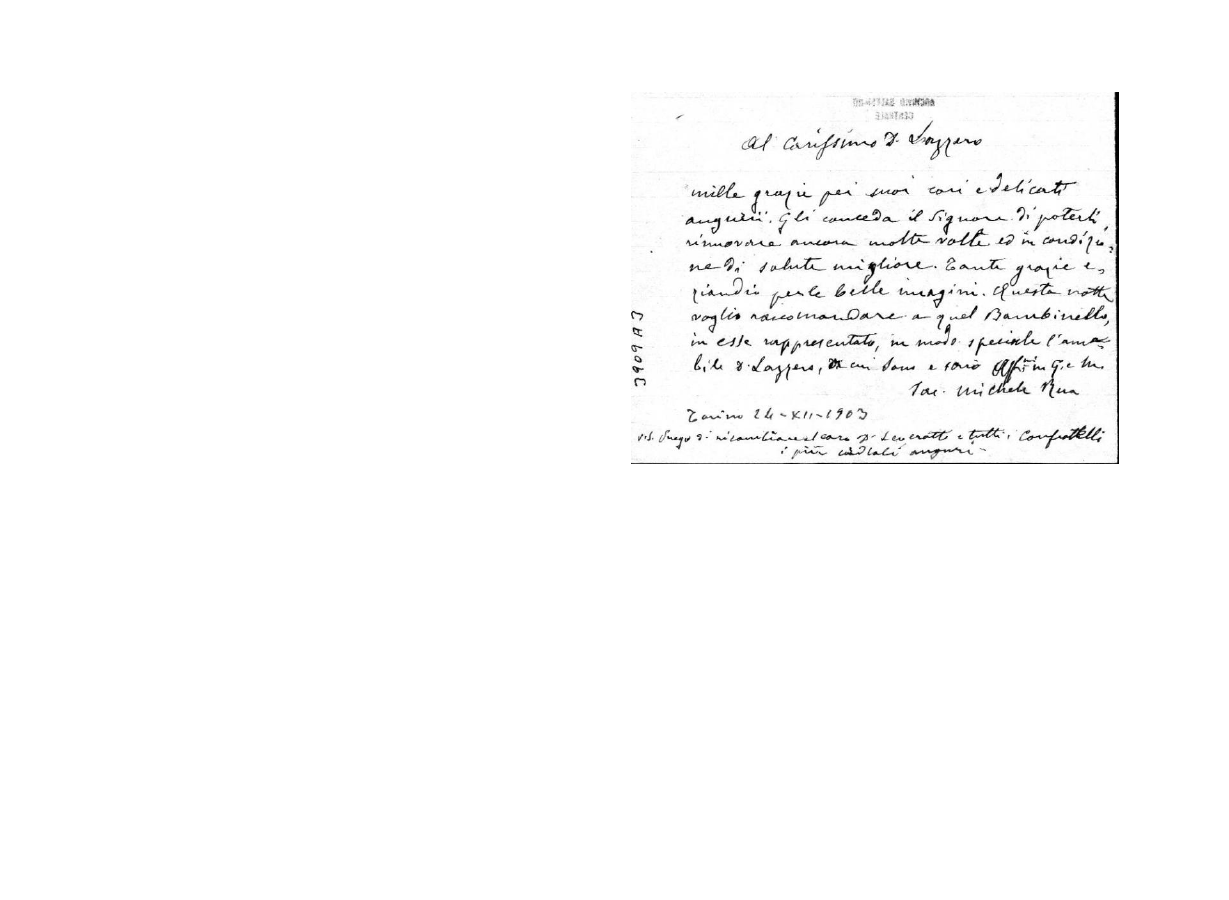 Al Carissimo D. Lazzero
mille grazie pei suoi cari e delicati
augurii. Gli conceda il Signore di poterli
rinnovare ancora molte volte ed in condizio-
ne di salute migliore. Tante grazie e-
ziandio per le belle imagini. Questa notte
voglio raccomandare a quel Bambinello,
in esse rappresentato, in modo speciale l'ama-
bile D. Lazzero, di cui sono e sarò Aff.mo in G. e M.
Sac. Michele Rua
Torino 24-XII-1903
P.S. Prego di ricambiare al caro D. e tutti i Confratelli
i più cordiali auguri
3909 A 3